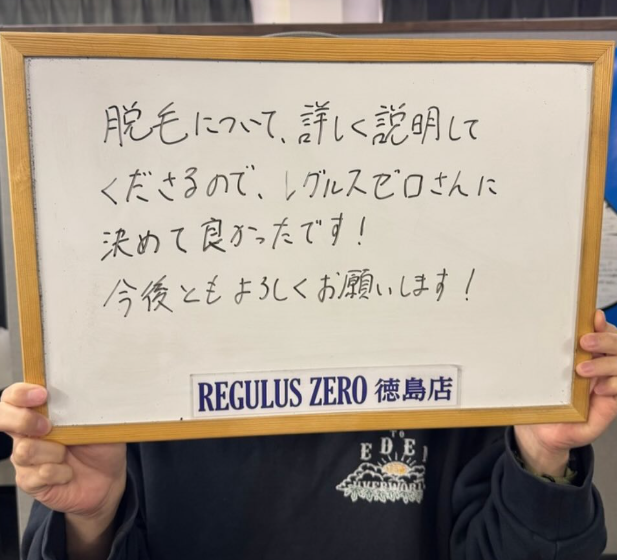 脱毛について、詳しく説明して
くださるので、レグルスゼロさんに
決めて良かったです！
今後ともよろしくお願いします！
REGULUS ZERO 徳島店
TO
EDEN